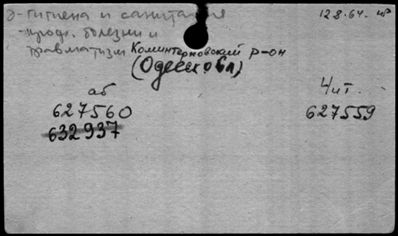 гигиена и санитария 128.64.
- проф. болезни и
травматизм Коминтерновский р-он
(Одесск обл)
аб Чит.
627560 627559
632937